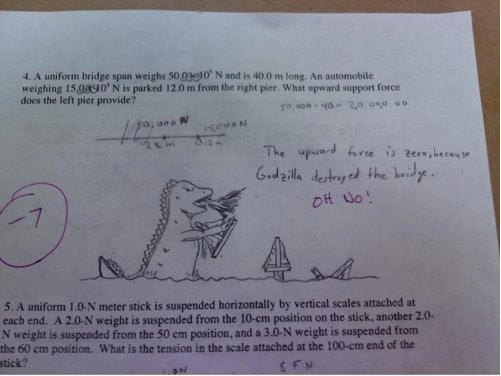 4. A uniform bridge span weighs 50.0 10³ N and is 40.0 m long. An automobile
weighing 15.0 10³ N is parked 12.0 m from the right pier. What upward support force
does the left pier provide?
50,000 · 40 = 2,000,000
50,000 N
15,000 N
28 m
12 m
The upward force is zero, because
Godzilla destroyed the bridge.
OH NO!
-7
5. A uniform 1.0-N meter stick is suspended horizontally by vertical scales attached at
each end. A 2.0-N weight is suspended from the 10-cm position on the stick, another 2.0-
N weight is suspended from the 50 cm position, and a 3.0-N weight is suspended from
the 60 cm position. What is the tension in the scale attached at the 100-cm end of the
stick?